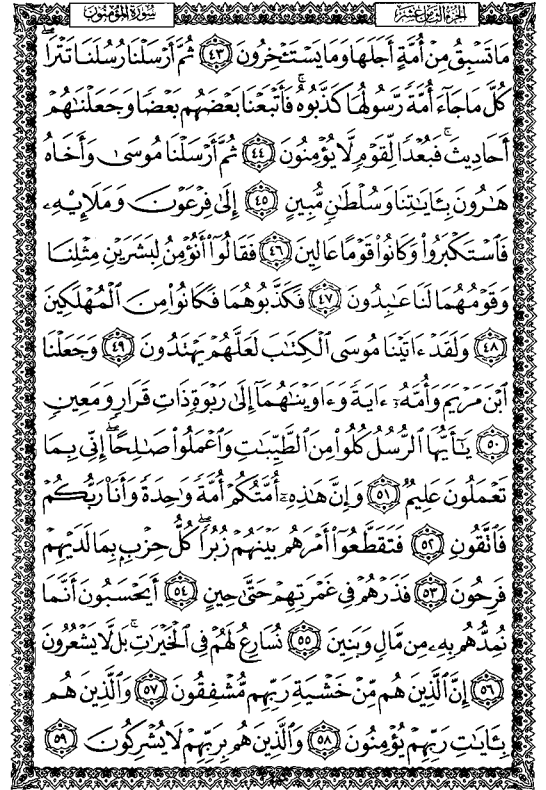 سُورَةُ المُؤْمِنُونَ
الجُزْءُ الثَّامِنَ عَشَرَ
مَا تَسْبِقُ مِنْ أُمَّةٍ أَجَلَهَا وَمَا يَسْتَـْٔخِرُونَ ٤٣ ثُمَّ أَرْسَلْنَا رُسُلَنَا تَتْرَاۖ
كُلَّ مَا جَآءَ أُمَّةً رَّسُولُهَا كَذَّبُوهُۚ فَأَتْبَعْنَا بَعْضَهُم بَعْضًا وَجَعَلْنَـٰهُمْ
أَحَادِيثَۚ فَبُعْدًا لِّقَوْمٍ لَّا يُؤْمِنُونَ ٤٤ ثُمَّ أَرْسَلْنَا مُوسَىٰ وَأَخَاهُ
هَـٰرُونَ بِـَٔايَـٰتِنَا وَسُلْطَـٰنٍ مُّبِينٍ ٤٥ إِلَىٰ فِرْعَوْنَ وَمَلَإِي۟هِۦ
فَٱسْتَكْبَرُوا۟ وَكَانُوا۟ قَوْمًا عَالِينَ ٤٦ فَقَالُوٓا۟ أَنُؤْمِنُ لِبَشَرَيْنِ مِثْلِنَا
وَقَوْمُهُمَا لَنَا عَـٰبِدُونَ ٤٧ فَكَذَّبُوهُمَا فَكَانُوا۟ مِنَ ٱلْمُهْلَكِينَ
٤٨ وَلَقَدْ ءَاتَيْنَا مُوسَى ٱلْكِتَـٰبَ لَعَلَّهُمْ يَهْتَدُونَ ٤٩ وَجَعَلْنَا
ٱبْنَ مَرْيَمَ وَأُمَّهُۥٓ ءَايَةً وَءَاوَيْنَـٰهُمَآ إِلَىٰ رَبْوَةٍ ذَاتِ قَرَارٍ وَمَعِينٍ
٥٠ يَـٰٓأَيُّهَا ٱلرُّسُلُ كُلُوا۟ مِنَ ٱلطَّيِّبَـٰتِ وَٱعْمَلُوا۟ صَـٰلِحًاۖ إِنِّى بِمَا
تَعْمَلُونَ عَلِيمٌ ٥١ وَإِنَّ هَـٰذِهِۦٓ أُمَّتُكُمْ أُمَّةً وَٰحِدَةً وَأَنَا۠ رَبُّكُمْ
فَٱتَّقُونِ ٥٢ فَتَقَطَّعُوٓا۟ أَمْرَهُم بَيْنَهُمْ زُبُرًاۖ كُلُّ حِزْبٍۭ بِمَا لَدَيْهِمْ
فَرِحُونَ ٥٣ فَذَرْهُمْ فِى غَمْرَتِهِمْ حَتَّىٰ حِينٍ ٥٤ أَيَحْسَبُونَ أَنَّمَا
نُمِدُّهُم بِهِۦ مِن مَّالٍ وَبَنِينَ ٥٥ نُسَارِعُ لَهُمْ فِى ٱلْخَيْرَٰتِۚ بَل لَّا يَشْعُرُونَ
٥٦ إِنَّ ٱلَّذِينَ هُم مِّنْ خَشْيَةِ رَبِّهِم مُّشْفِقُونَ ٥٧ وَٱلَّذِينَ هُم
بِـَٔايَـٰتِ رَبِّهِمْ يُؤْمِنُونَ ٥٨ وَٱلَّذِينَ هُم بِرَبِّهِمْ لَا يُشْرِكُونَ ٥٩